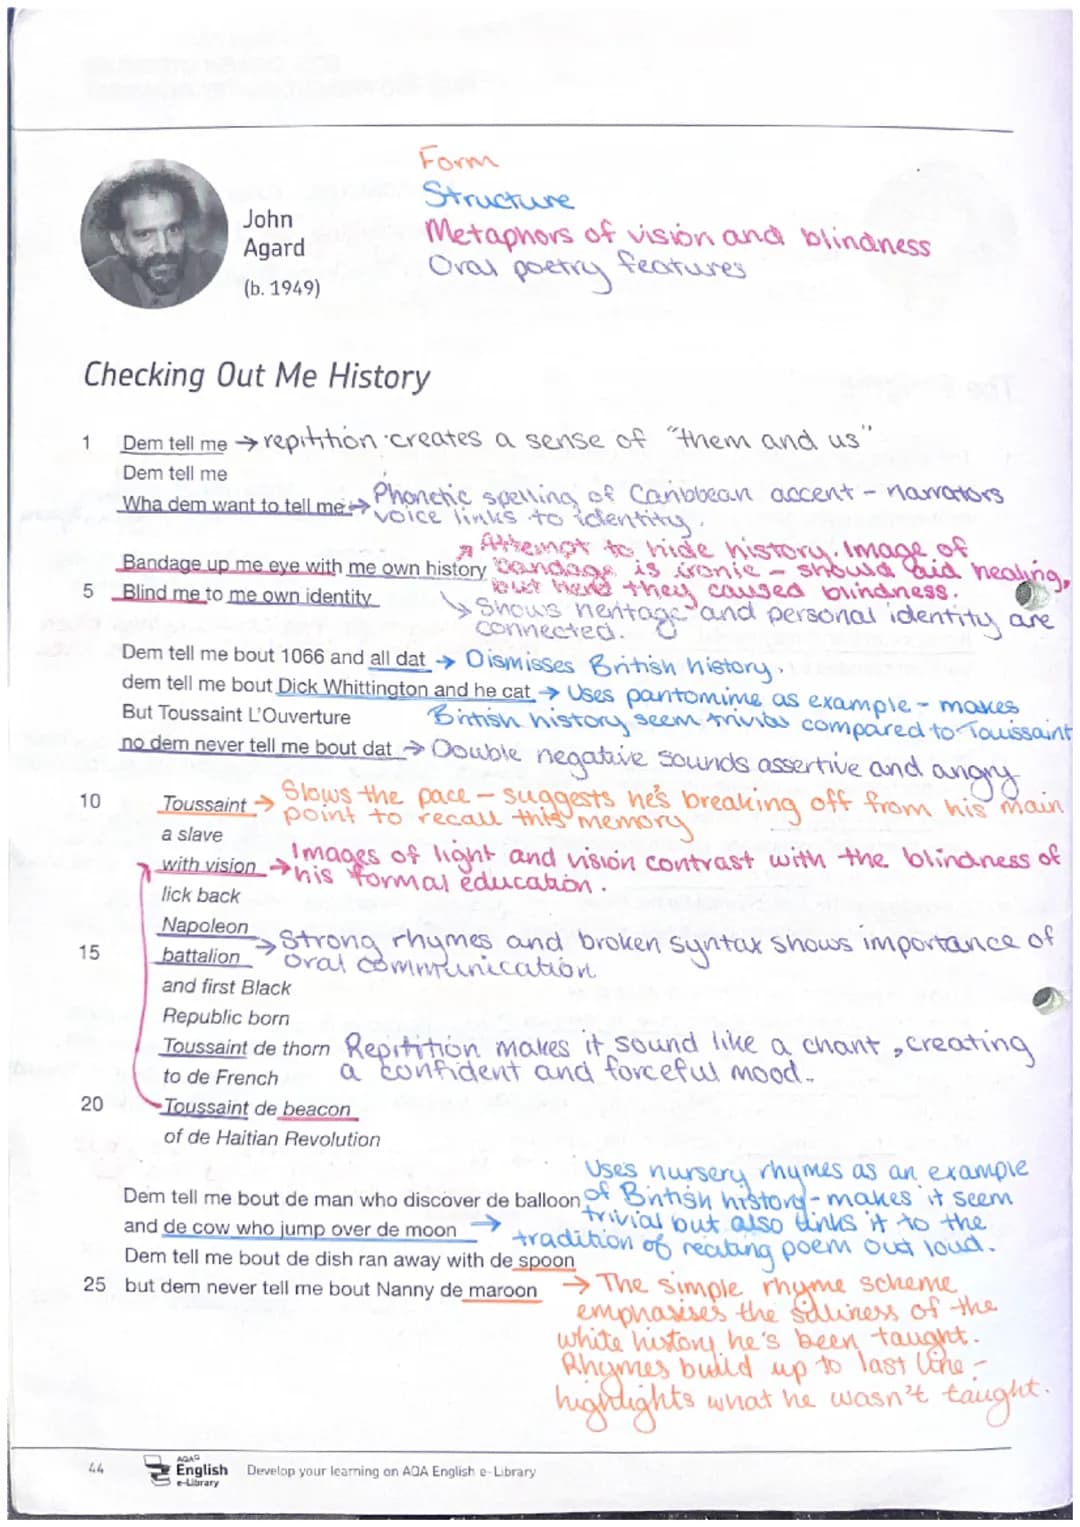 Form
Structure
Metaphors of vision and blindness
Oral poetry features
John
Agard
(b. 1949)
Checking Out Me History
1 Dem tell me → repitition creates a sense of "them and us"
Dem tell me
Wha dem want to tell me → Phonetic spelling of Caribbean accent - narrators
voice links to identity.
Attempt to hide history. Image of
Bandage up me eye with me own history bandage is ironic - should aid healing,
but here they caused blindness.
5 Blind me to me own identity
Shows heritage and personal identity are
connected.
Dem tell me bout 1066 and all dat → Dismisses British history.
dem tell me bout Dick Whittington and he cat → Uses pantomime as example - makes
But Toussaint L'Ouverture British history seem trivial compared to Touissaint
no dem never tell me bout dat → Double negative sounds assertive and angry
10 Toussaint → Slows the pace - suggests he's breaking off from his main
point to recall this memory
a slave
with vision → Images of light and vision contrast with the blindness of
his formal education.
lick back
Napoleon
15 battalion → Strong rhymes and broken syntax shows importance of
oral communication
and first Black
Republic born
Toussaint de thorn Repitition makes it sound like a chant, creating
to de French a confident and forceful mood.
20 Toussaint de beacon
of de Haitian Revolution
Uses nursery rhymes as an example
Dem tell me bout de man who discover de balloon of British history - makes it seem
and de cow who jump over de moon → trivial but also links it to the
tradition of reciting poem out loud.
Dem tell me bout de dish ran away with de spoon
25 but dem never tell me bout Nanny de maroon → The simple rhyme scheme
emphasises the silliness of the
white history he's been taught.
Rhymes build up to last line -
highlights what he wasn't taught.
44 AQA English e-Library Develop your learning on AQA English e-Library